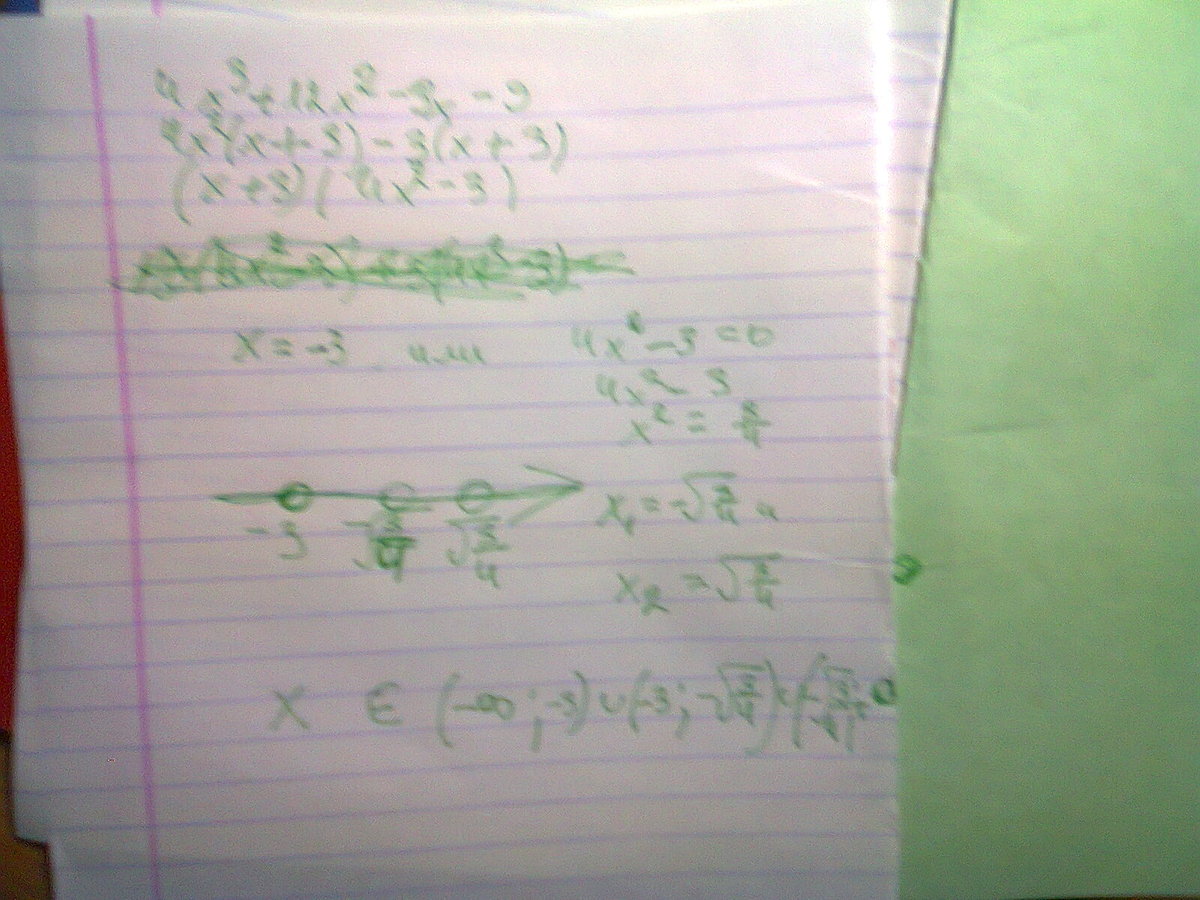 4x³+12x²-3x-9
4x²(x+3)-3(x+3)
(x+3)(4x²-3)
x=-3 или 4x²-3=0
4x² 3
x²=3/4
-3 -√3/4 √3/4 x₁=-√3/4 и
x₂=√3/4
x ∈ (-∞;-3)∪(-3;-√3/4)∪(-√3/4;